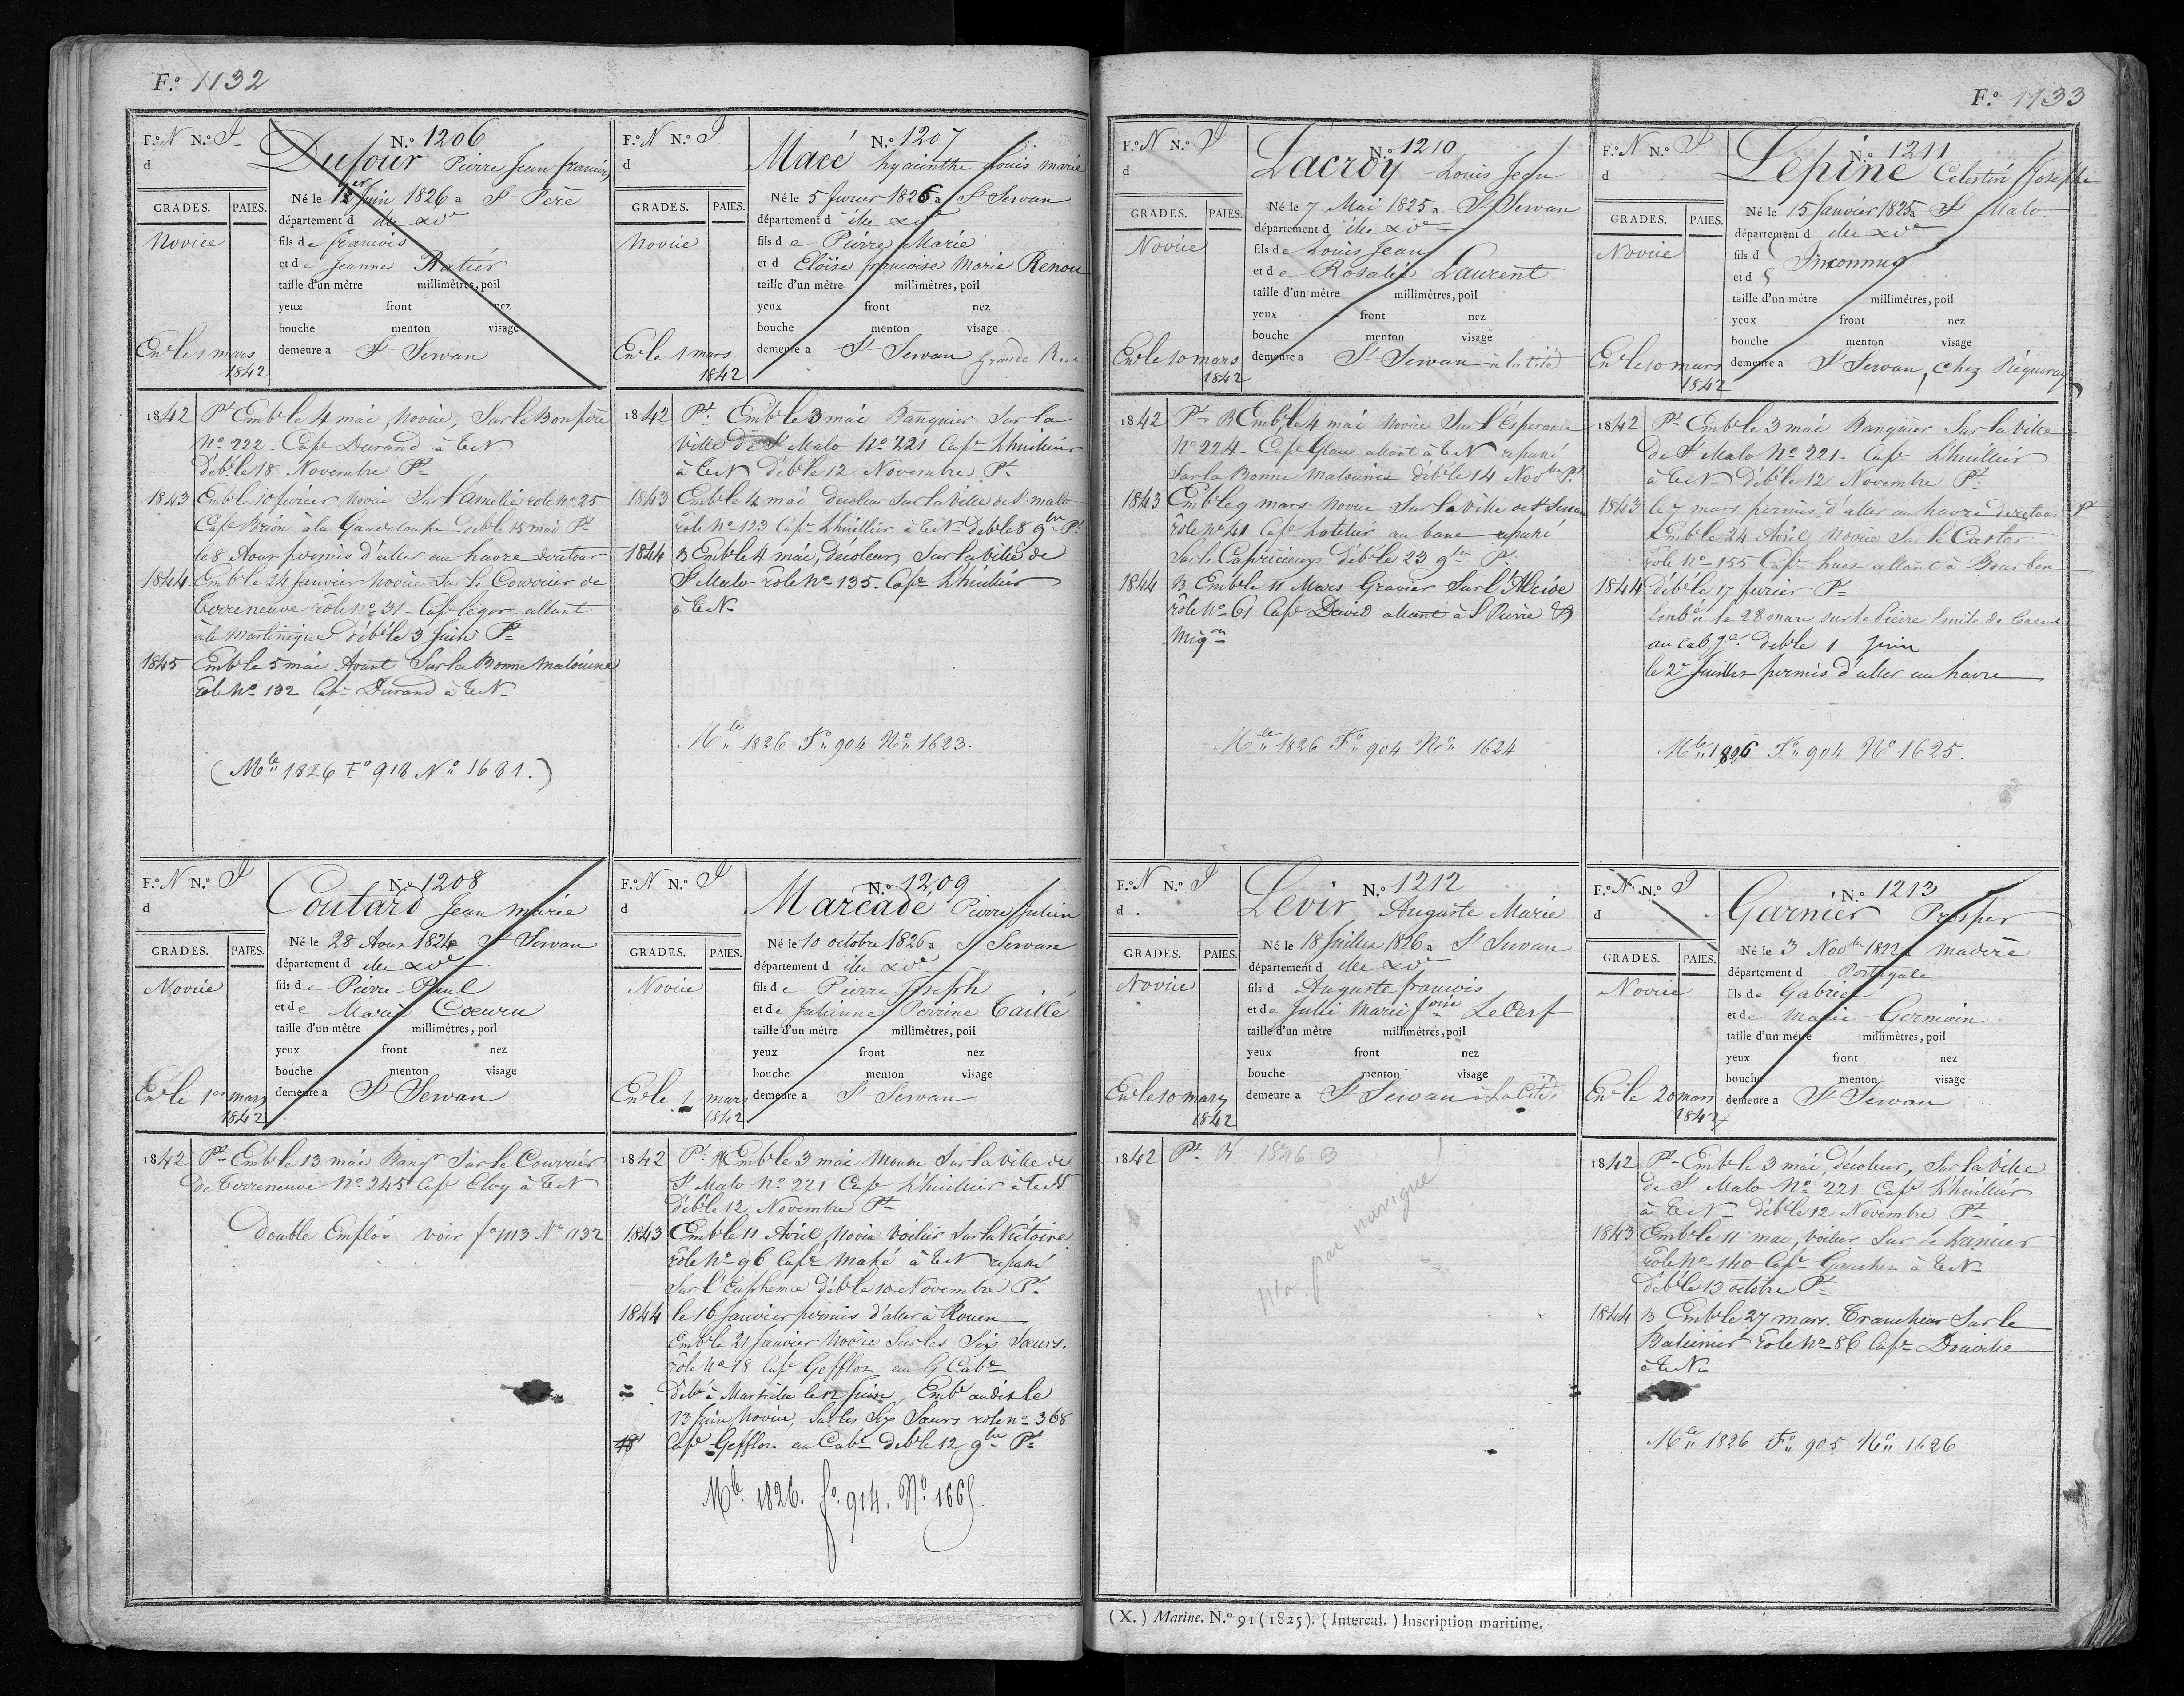 F.º 1132
F.º N N.º I
d
GRADES. PAIES.
Novice
En.le 1 mars
1842
N.º 1206
Dufour Pierre Jean françois
Né le 1er Juin 1826 a St Père
département d ille & Ve
fils de françois
et de Jeanne Ratier
taille d'un mètre millimètres, poil
yeux front nez
bouche menton visage
demeure a St Servan
1842 Pt Emb.le 4 mai, Novice, Sur le Bon père
No 222 Cape Durand à T.N.
déb.le 18 Novembre Pt
1843 Emb.le 10 fevrier, Novice Sur l'Amelie role No 25
Cape Brion à la Guadeloupe deb.le 15 mai Pt
le 8 Aout permis d'aller au havre de retour
1844 Emb.le 24 Janvier Novice Sur le Courrier de
Terreneuve rôle No 31 Cape leger allant
à la Martinique déb.le 3 Juin Pt
1845 Emb.le 5 mai Avant Sur la Bonne Malouine
Role No 132 Cape Durand à T.N.
(Mle 1826 Fo 918 No 1681.)
F.º N N.º I
d
GRADES. PAIES.
Novice
En.le 1 mars
1842
N.º 1207
Macé hyacinthe Louis marie
Né le 5 fevrier 1826 a St Servan
département d ille & Ve
fils de Pierre Marie
et d Eloïse françoise Marie Renou
taille d'un mètre millimètres, poil
yeux front nez
bouche menton visage
demeure a St Servan Grande Rue
1842 Pt. Emb.le 3 mai Banquier Sur la
Ville de St Malo No 221 Cape Lhuillier
à T.N. déb.le 12 Novembre Pt
1843 Emb.le 4 mai decoleur Sur la Ville de St malo
role No 123 Cape Lhuillier à T.N. deb.le 8 9bre Pt
1844 B Emb.le 4 mai, décoleur, Sur la ville de
St Malo rôle No 135 Cape Lhuillier
à T.N.
Mle 1826 Fo 904 No 1623.
F.º N N.º I
d
GRADES. PAIES.
Novice
En.le 1er mars
1842
N.º 1208
Coutard Jean marie
Né le 28 Aout 1824 a St Servan
département d ille & Ve
fils de Pierre Paul
et de Marie Coeuru
taille d'un mètre millimètres, poil
yeux front nez
bouche menton visage
demeure a St Servan
1842 Pt Emb.le 13 mai Banqr Sur le Courrier
de Terreneuve No 245 Cape Eloy à T.N
double Emploi voir fo 1113 No 1132
F.º N N.º I
d
GRADES. PAIES.
Novice
En.le 1 mars
1842
N.º 1209
Marcadé Pierre Julien
Né le 10 octobre 1826 a St Servan
département d ille & Ve
fils de Pierre Joseph
et de Julienne Perrine Taillé
taille d'un mètre millimètres, poil
yeux front nez
bouche menton visage
demeure a St Servan
1842 Pt. Emb.le 3 mai Mousse Sur la Ville de
St Malo No 221 Cape Lhuillier à T.N
déb.le 12 Novembre Pt
1843 Emb.le 11 Avril, Novice Voilier Sur la Victoire
rôle No 96 Cape Mahé à T.N repassé
Sur l'Euphemie déb.le 10 Novembre Pt
1844 le 16 Janvier permis d'aller à Rouen
Emb.le 21 Janvier Novice Sur les Six Soeurs.
rôle No 18 Cape Gefflot au G Cabe
Déb.é à Marseille le 12 Juin, Emb.é audit le
13 Juin Novice, Sur les Six Soeurs role No 368
Cape Gefflot au Cabe deb.le 12 9bre Pt
Mle 1826. fo. 914. No. 1665.
F.º 1133
F.º N N.º I
d
GRADES. PAIES.
Novice
En.le 10 mars
1842
N.º 1210
Lacroy Louis Jean
Né le 7 Mai 1825 a St Servan
département d ille & Ve
fils de Louis Jean
et de Rosalie Laurent
taille d'un mètre millimètres, poil
yeux front nez
bouche menton visage
demeure a St Servan à la Cité
1842 Pt B Emb.le 4 mai Novice Sur l'Esperance
No 224 Cape Glau allant à T.N repassé
Sur la Bonne Malouine déb.le 14 Novbre Pt
1843 Emb.le 9 mars Novice Sur la Ville de St Servan
role No 41 Cape hotelier au banc repassé
Sur le Capricieux déb.le 23 9bre Pt
1844 B. Emb.le 11 Mars Gravier Sur l'Alcide
rôle No 61 Cape David allant à St Pierre &
Miqon
Mle 1826 Fo 904 No 1624
F.º N N.º I
d
GRADES. PAIES.
Novice
En.le 10 mars
1842
N.º 1211
Lepine Celestin Joseph
Né le 15 Janvier 1825 a St Malo
département d ille & Ve
fils d
et d
Inconnus
taille d'un mètre millimètres, poil
yeux front nez
bouche menton visage
demeure a St Servan, chez Réqueray
1842 Pt Emb.le 3 mai Banquier Sur la Ville
de St Malo No 221 Cape Lhuillier
à T.N déb.le 12 Novembre Pt
1843 le 7 mars permis d'aller au havre de retour
Emb.le 24 Avril Novice Sur le Castor
role No 155 Cape huet allant à Bourbon
1844 déb.le 17 fevrier Pt
Emb.é le 28 mars sur le Pierre Emile de Caen
au cabge deb.le 1 Juin
le 2 Juillet permis d'aller au havre
Mle 1826 Fo 904 No 1625.
F.º N N.º I
d
GRADES. PAIES.
Novice
En.le 10 mars
1842
N.º 1212
Levir Auguste Marie
Né le 18 Juillet 1826 a St Servan
département d ille & Ve
fils d Auguste françois
et de Julie Marie foise LeCerf
taille d'un mètre millimètres, poil
yeux front nez
bouche menton visage
demeure a St Servan à la Cité
1842 Pt 1846 B
N'a pas navigué
F.º N N.º I
d
GRADES. PAIES.
Novice
En.le 20 mars
1842
N.º 1213
Garnier Prosper
Né le 3 Novbre 1822 a Madère
département d Portugale
fils de Gabriel
et de Marie Germain
taille d'un mètre millimètres, poil
yeux front nez
bouche menton visage
demeure a St Servan
1842 Pt Emb.le 3 mai, décoleur, Sur la Ville
de St Malo No 221 Cape Lhuillier
à T.N déb.le 12 Novembre Pt
1843 Emb.le 11 mai, voilier Sur le
role No 140 Cape Gaucher à T.N.
déb.le 13 octobre Pt
1844 B Emb.le 27 mars. Trancheur Sur le
Baleinier role No 86 Cape Douville
à T.N.
Mle 1826 Fo 905 No 1626
(X.) Marine. N.º 91 (1825). (Intercal.) Inscription maritime.